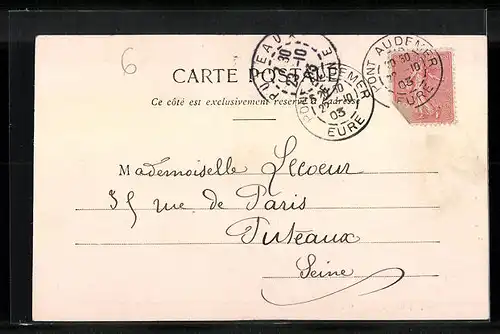 6
CARTE POSTALE
Ce côté est exclusivement réservé à l'adresse
PUTEAUX
PONT AUDEMER
22 -10
03
EURE
PONT AUDEMER
03
EURE
Mademoiselle Lecoeur
35 rue de Paris
Puteaux
Seine